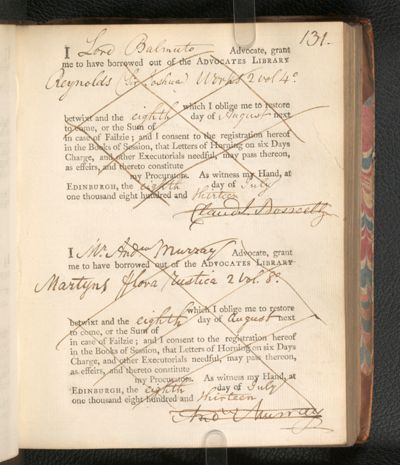 131.
I Lord Balmuto Advocate, grant
me to have borrowed out of the ADVOCATES LIBRARY
Reynolds (Sir Joshua) Works 2 vol 4o
which I oblige me to restore
betwixt and the eighth day of August next
to come, or the Sum of
in case of Failzie; and I consent to the registration hereof
in the Books of Session, that Letters of Horning on six Days
Charge, and other Executorials needful, may pass thereon,
as effeirs, and thereto constitute
my Procurators. As witness my Hand, at
EDINBURGH, the eighth day of July
one thousand eight hundred and thirteen
Claud Boswell
I Mr. Andw Murray Advocate, grant
me to have borrowed out of the ADVOCATES LIBRARY
Martyns flora rustica 2 vol. 8o
which I oblige me to restore
betwixt and the eighth day of August next
to come, or the Sum of
in case of Failzie; and I consent to the registration hereof
in the Books of Session, that Letters of Horning on six Days
Charge, and other Executorials needful, may pass thereon,
as effeirs, and thereto constitute
my Procurators. As witness my Hand, at
EDINBURGH, the eighth day of July
one thousand eight hundred and thirteen
Andw Murray